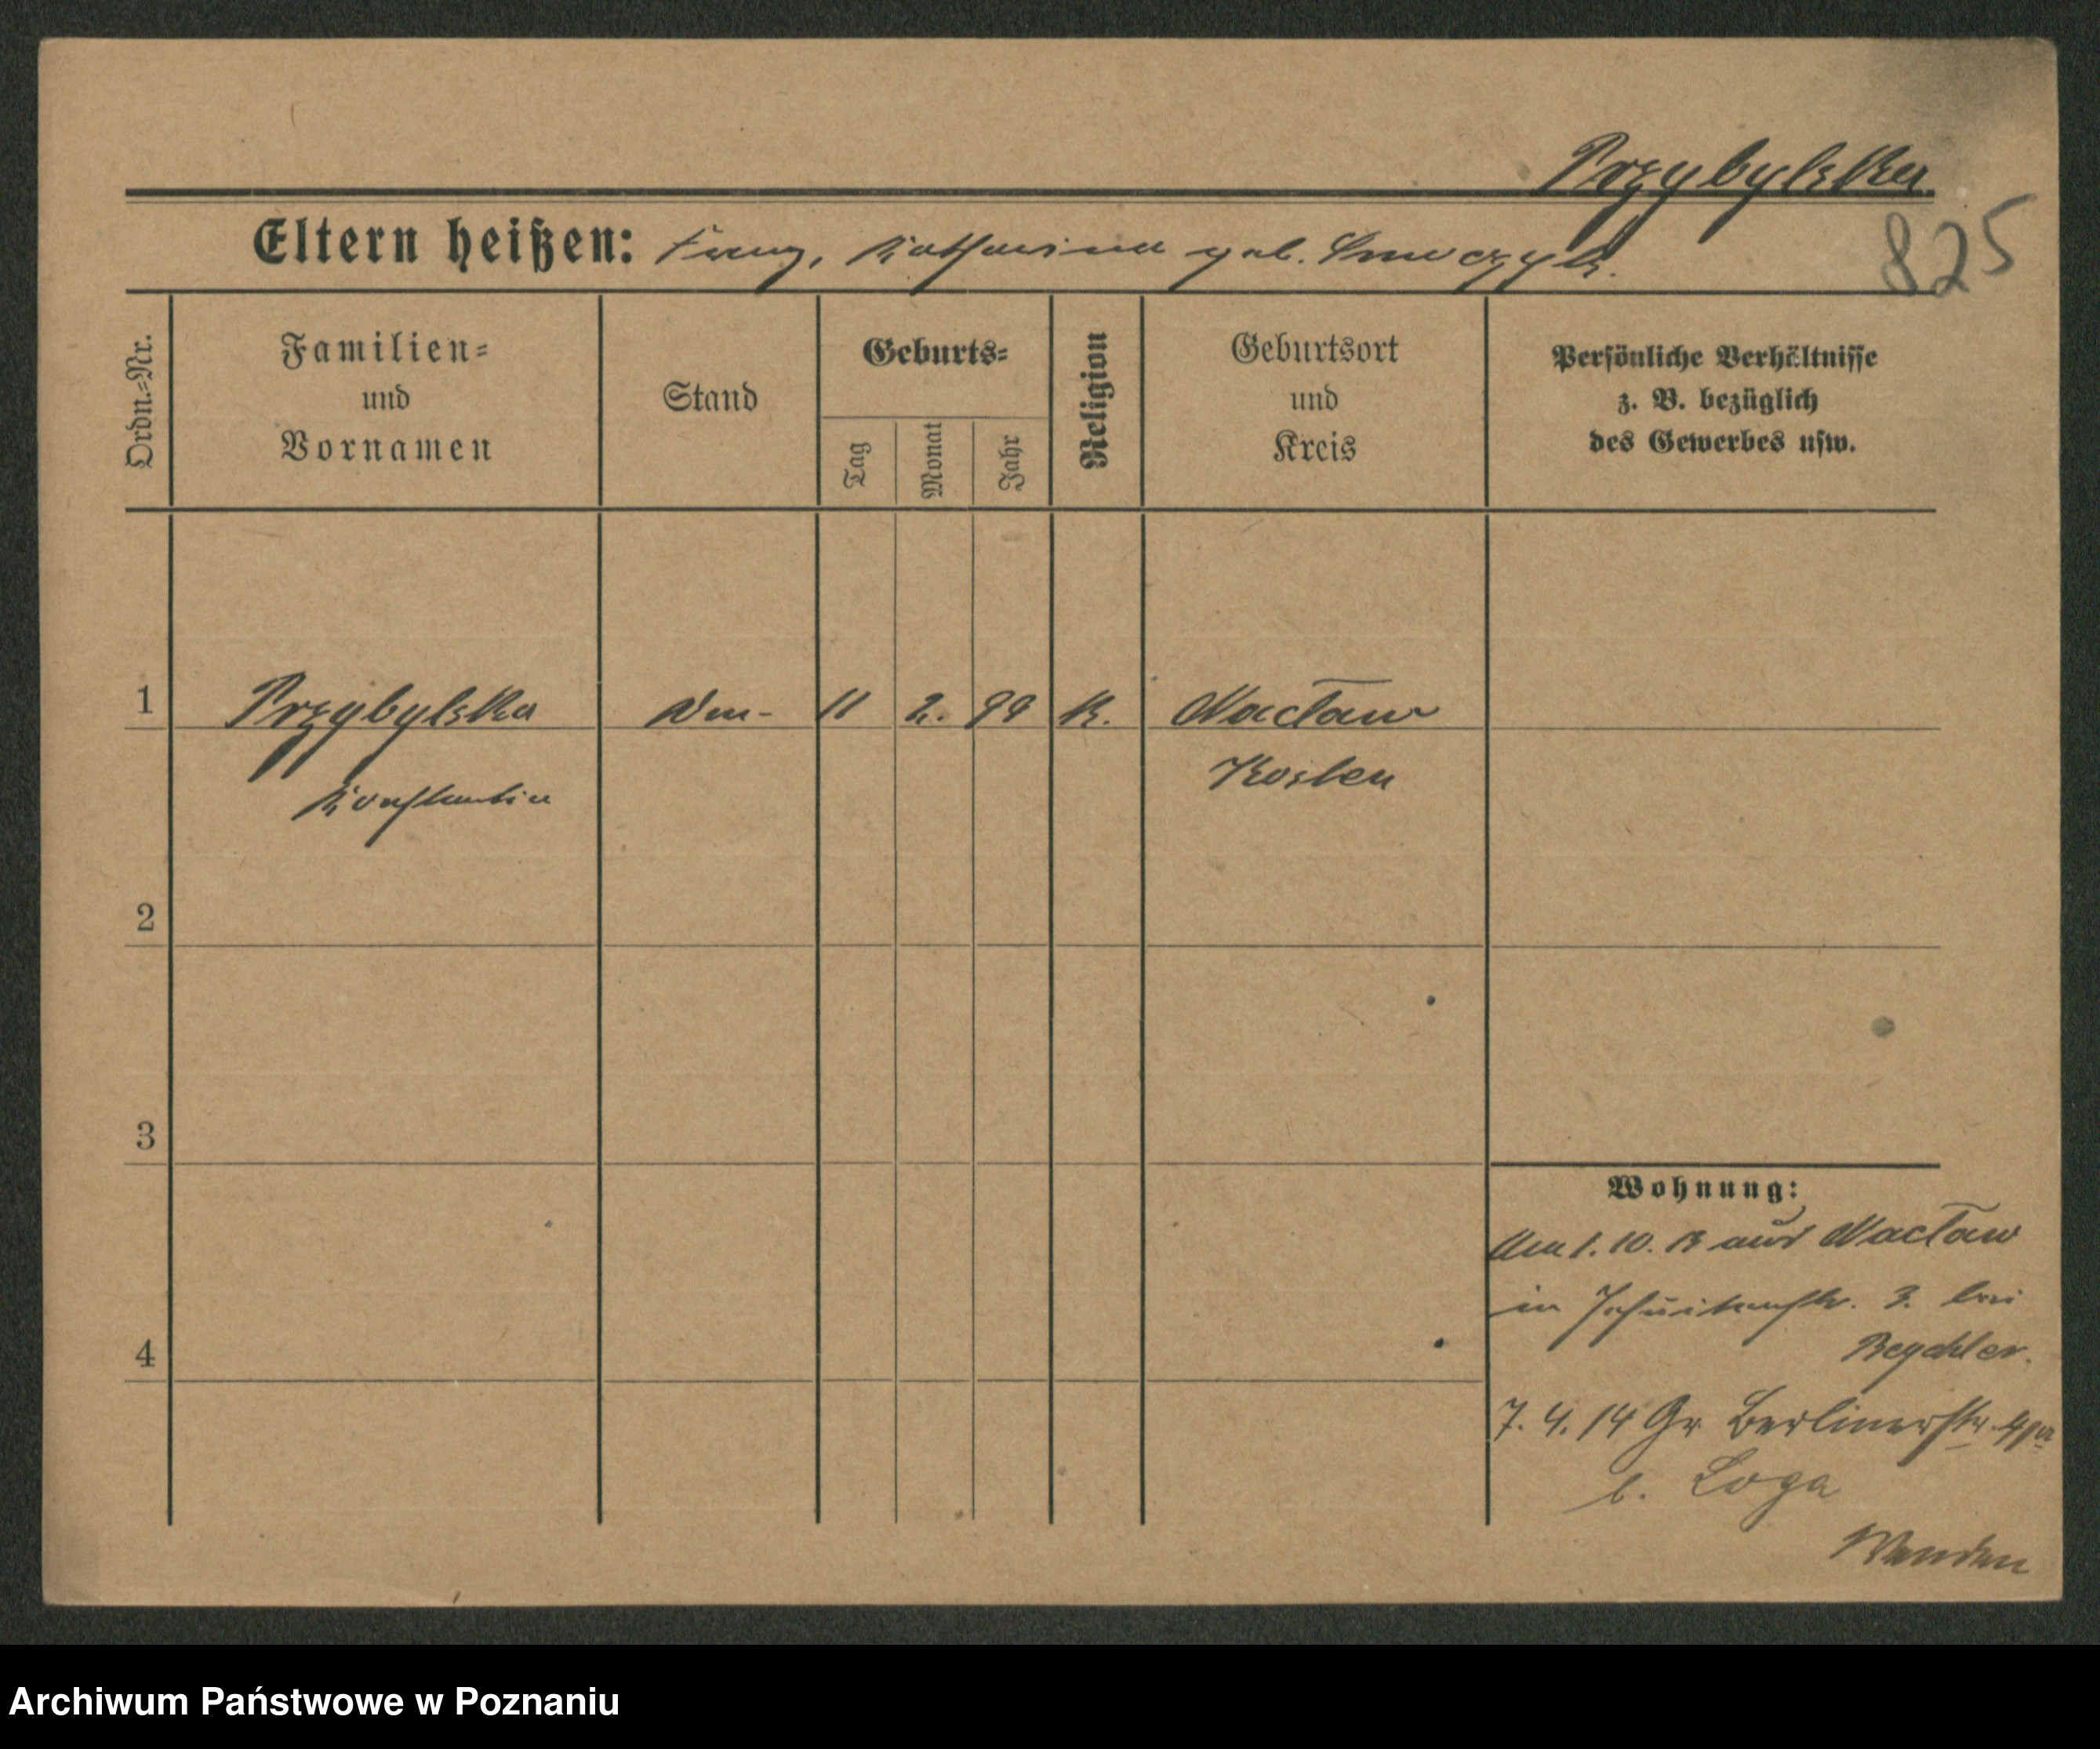 Przybylska
825
Eltern heißen: Franz, Katharina geb.
Ordn.=Nr.
Familien=
und
Vornamen
Stand
Geburts=
Tag
Monat
Jahr
Religion
Geburtsort
und
Kreis
Persönliche Verhältnisse
z. B. bezüglich
des Gewerbes usw.
1 Przybylska 11 2. 99 K. Nacław
Konstantia Kosten
2
3
4
Wohnung:
Am 1. 10. 13 aus Nacław
in Jesuitenstr. 3. bei
7. 4. 14 Gr Berlinerstr.
b. Loga
Wenden
Archiwum Państwowe w Poznaniu